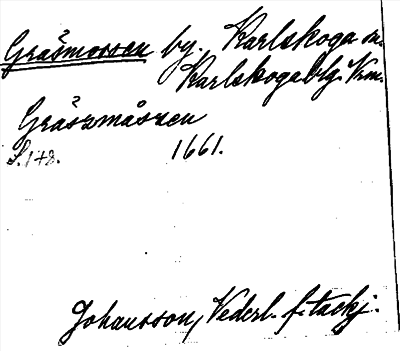 Gräsmossen by. Karlskoga sn.
Karlskogabrg. Vrm.
Gräszmåszen
S. 148. 1661.
Johansson, Vederl. f. tackj.